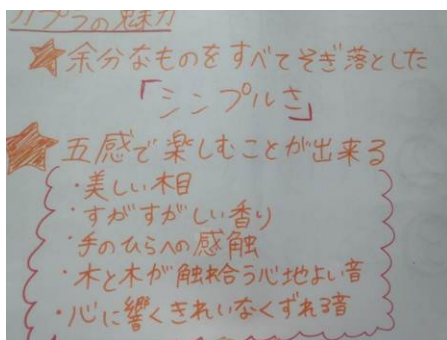 カプラの魅力
★余分なものをすべてそぎ落とした
「シンプルさ」
★五感で楽しむことが出来る
・美しい木目
・すがすがしい香り
・手のひらへの感触
・木と木が触れ合う心地よい音
・心に響くきれいなくずれる音